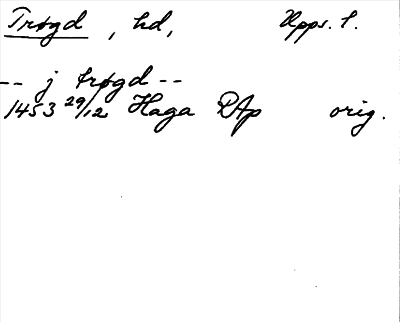 Trøgd, hd, Upps. l.
-- j trøgd --
1453 29/12 Haga RAp orig.